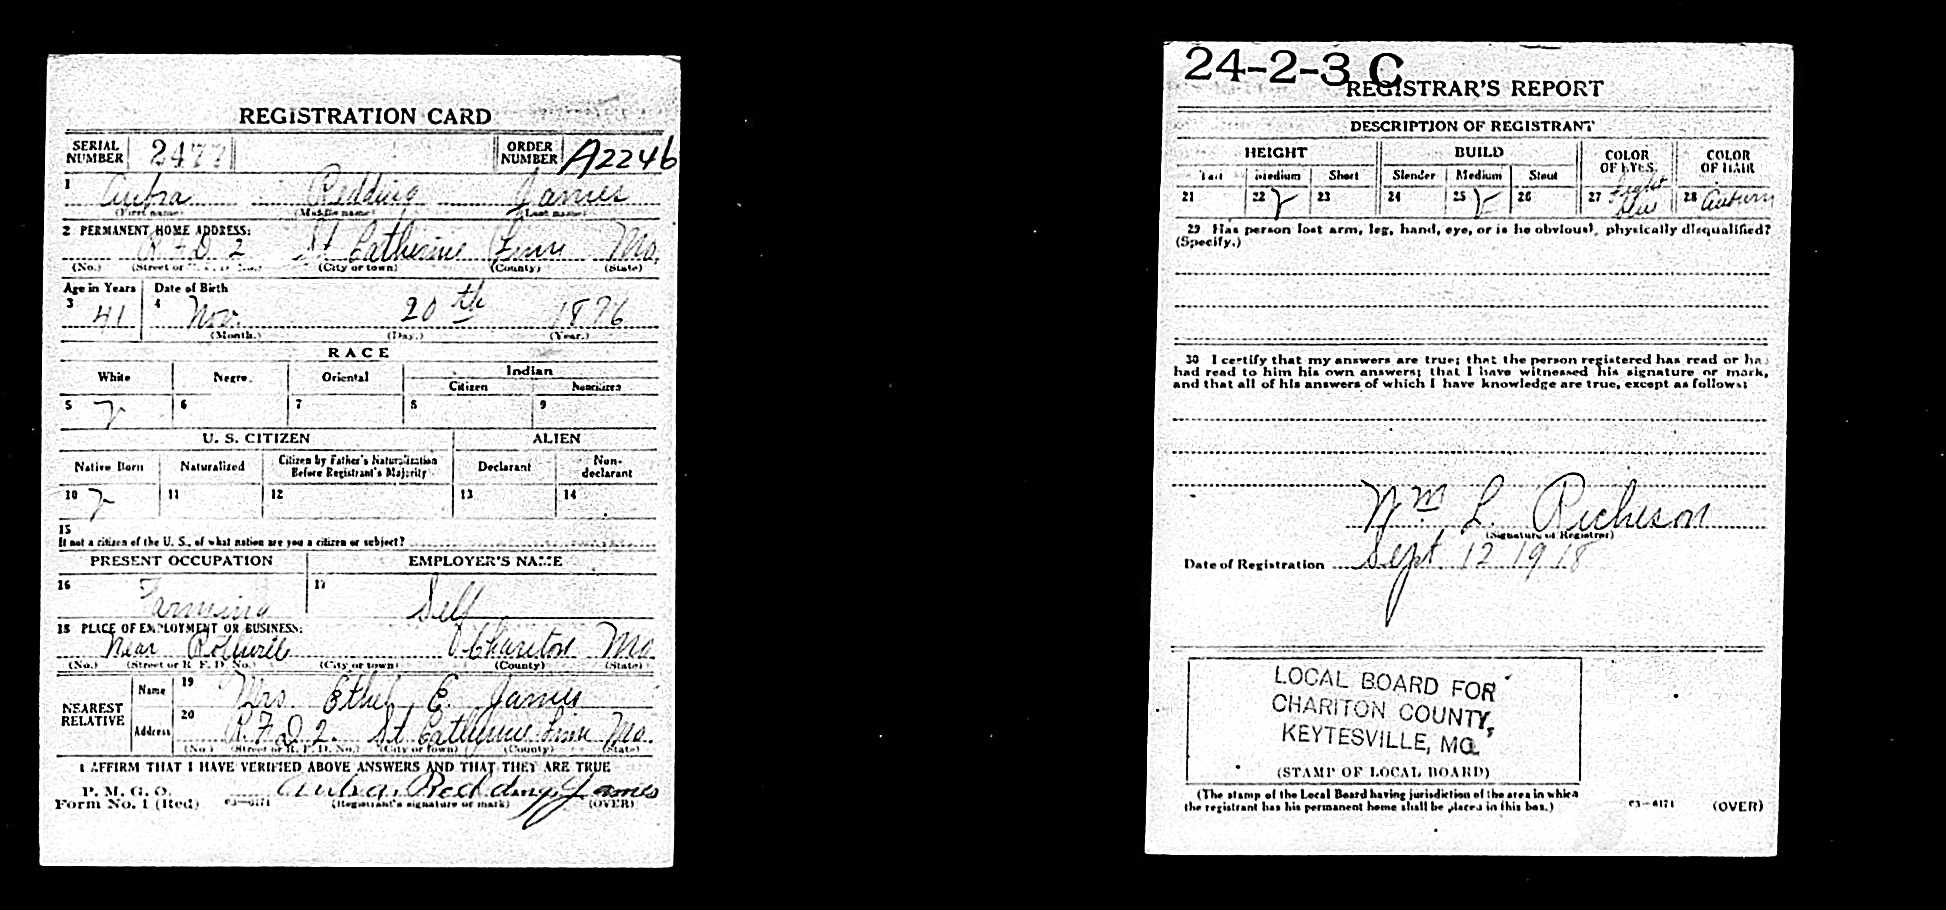 REGISTRATION CARD
SERIAL NUMBER 2477 ORDER NUMBER A2246
1 Aubra Redding James
(First name) (Middle name) (Last name)
2 PERMANENT HOME ADDRESS:
R F D 2 St Catherine Linn Mo.
(No.) (Street or R. F. D. No.) (City or town) (County) (State)
Age in Years Date of Birth
3 41 4 Nov. 20th 1876
(Month.) (Day.) (Year.)
RACE
White Negro Oriental Indian
Citizen Noncitizen
5 6 7 8 9
U. S. CITIZEN ALIEN
Native Born Naturalized Citizen by Father's Naturalization Before Registrant's Majority Declarant Non-declarant
10 11 12 13 14
15
If not a citizen of the U. S., of what nation are you a citizen or subject?
PRESENT OCCUPATION EMPLOYER'S NAME
16 Farming 17 Self
18 PLACE OF EMPLOYMENT OR BUSINESS:
Near Chariton Mo
(No.) (Street or R. F. D. No.) (City or town) (County) (State)
NEAREST RELATIVE Name 19 Mrs. Ethel E. James
Address 20 R. F. D 2. St Catherine Linn Mo.
(No.) (Street or R. F. D. No.) (City or town) (County) (State)
I AFFIRM THAT I HAVE VERIFIED ABOVE ANSWERS AND THAT THEY ARE TRUE
P. M. G. O.
Form No. 1 (Red) 03—6171 Aubra Redding James
(Registrant's signature or mark) (OVER)
24-2-3 C
REGISTRAR'S REPORT
DESCRIPTION OF REGISTRANT
HEIGHT BUILD COLOR OF EYES COLOR OF HAIR
Tall Medium Short Slender Medium Stout
21 22 23 24 25 26 27 Light blue 28 Auburn
29 Has person lost arm, leg, hand, eye, or is he obviously physically disqualified?
(Specify.)
30 I certify that my answers are true; that the person registered has read or has
had read to him his own answers; that I have witnessed his signature or mark,
and that all of his answers of which I have knowledge are true, except as follows:
Wm. L. Richeson
(Signature of Registrar)
Date of Registration Sept 12 1918
LOCAL BOARD FOR
CHARITON COUNTY,
KEYTESVILLE, MO.
(STAMP OF LOCAL BOARD)
(The stamp of the Local Board having jurisdiction of the area in which
the registrant has his permanent home shall be placed in this box.)
03—6171 (OVER)